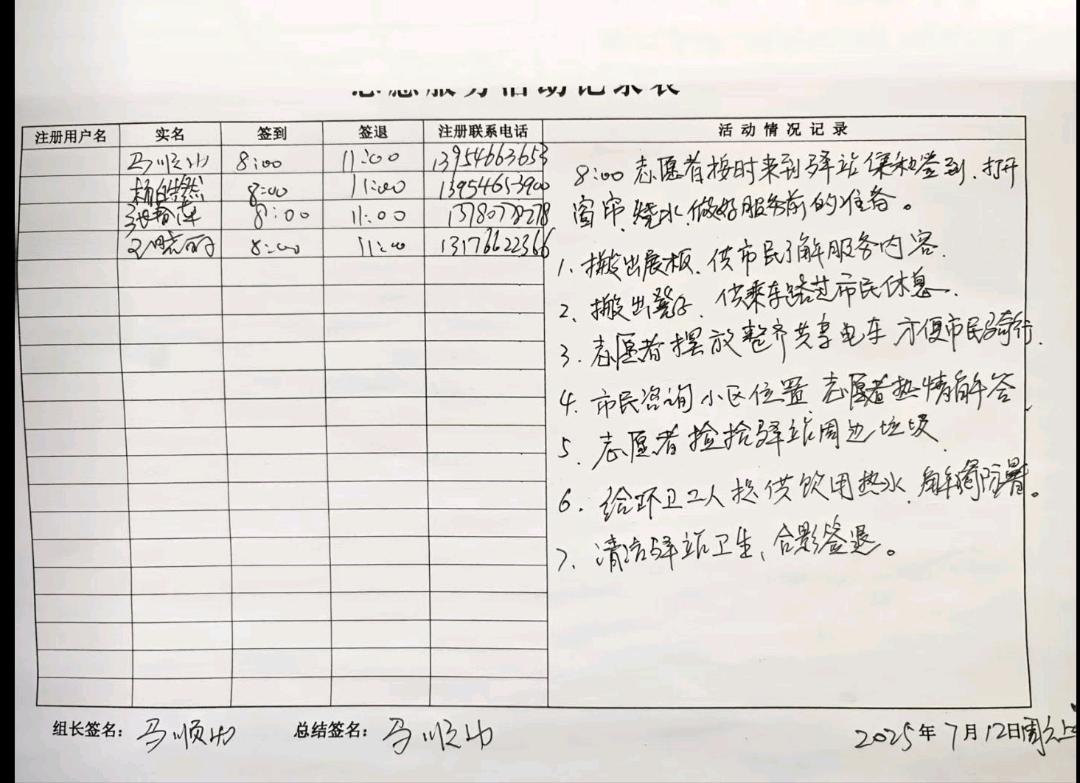 志愿服务活动记录表
注册用户名 实名 签到 签退 注册联系电话 活动情况记录
马顺功 8:00 11:00 13954663653
8:00 11:00 13954653900
8:00 11:00
8:00 11:00 13176622366
8:00 志愿者按时来到驿站集和签到、打开
窗帘、烧水、做好服务前的准备。
1、搬出展板、供市民了解服务内容.
2、搬出凳子、供乘车路过市民休息.
3、志愿者摆放整齐共享电车 方便市民骑行.
4、市民咨询小区位置 志愿者热情解答.
5、志愿者捡拾驿站周边垃圾
6、给环卫工人提供饮用热水、解渴防暑。
7、清洁驿站卫生、合影签退。
组长签名：马顺功 总结签名：马顺功 2025年7月12日周六上